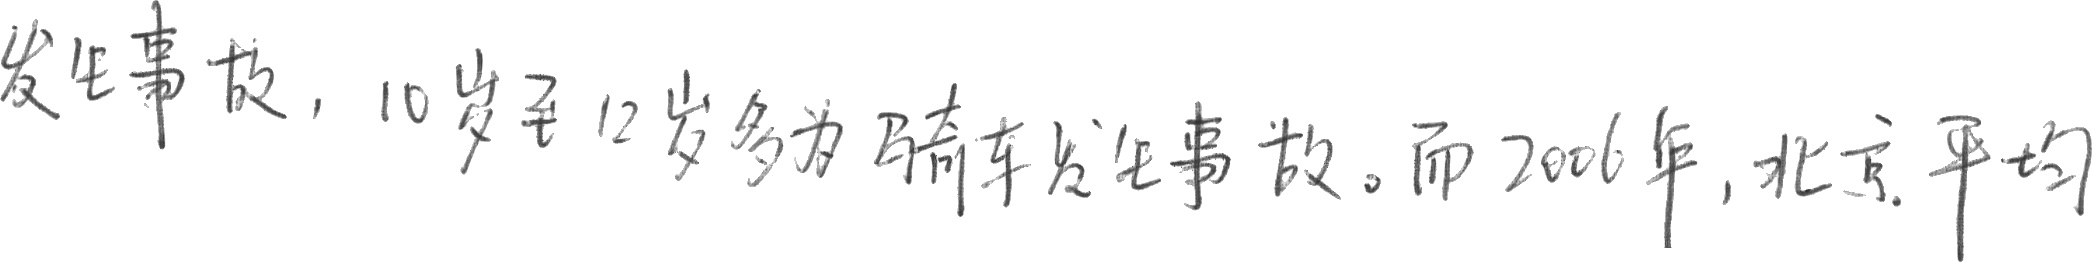 发生事故，10岁至12岁多为骑车发生事故。而2006年，北京平均